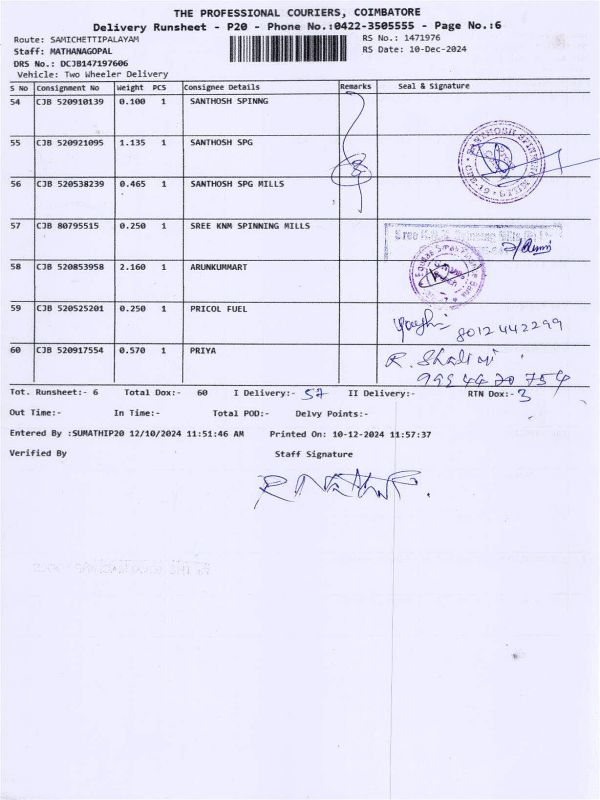 THE PROFESSIONAL COURIERS, COIMBATORE
Delivery Runsheet - P20 - Phone No.:0422-3505555 - Page No.:6
Route: SAMICHETTIPALAYAM RS No.: 1471976
Staff: MATHANAGOPAL RS Date: 10-Dec-2024
DRS No.: DCJB147197606
Vehicle: Two Wheeler Delivery
S No Consignment No Weight PCS Consignee Details Remarks Seal & Signature
54 CJB 520910139 0.100 1 SANTHOSH SPINNG
55 CJB 520921095 1.135 1 SANTHOSH SPG
56 CJB 520538239 0.465 1 SANTHOSH SPG MILLS
57 CJB 80795515 0.250 1 SREE KNM SPINNING MILLS
58 CJB 520853958 2.160 1 ARUNKUMMART
59 CJB 520525201 0.250 1 PRICOL FUEL
8012442299
60 CJB 520917554 0.570 1 PRIYA R. Shalini
9994420754
Tot. Runsheet:- 6 Total Dox:- 60 I Delivery:- 57 II Delivery:- RTN Dox:- 3
Out Time:- In Time:- Total POD:- Delvy Points:-
Entered By :SUMATHIP20 12/10/2024 11:51:46 AM Printed On: 10-12-2024 11:57:37
Verified By Staff Signature